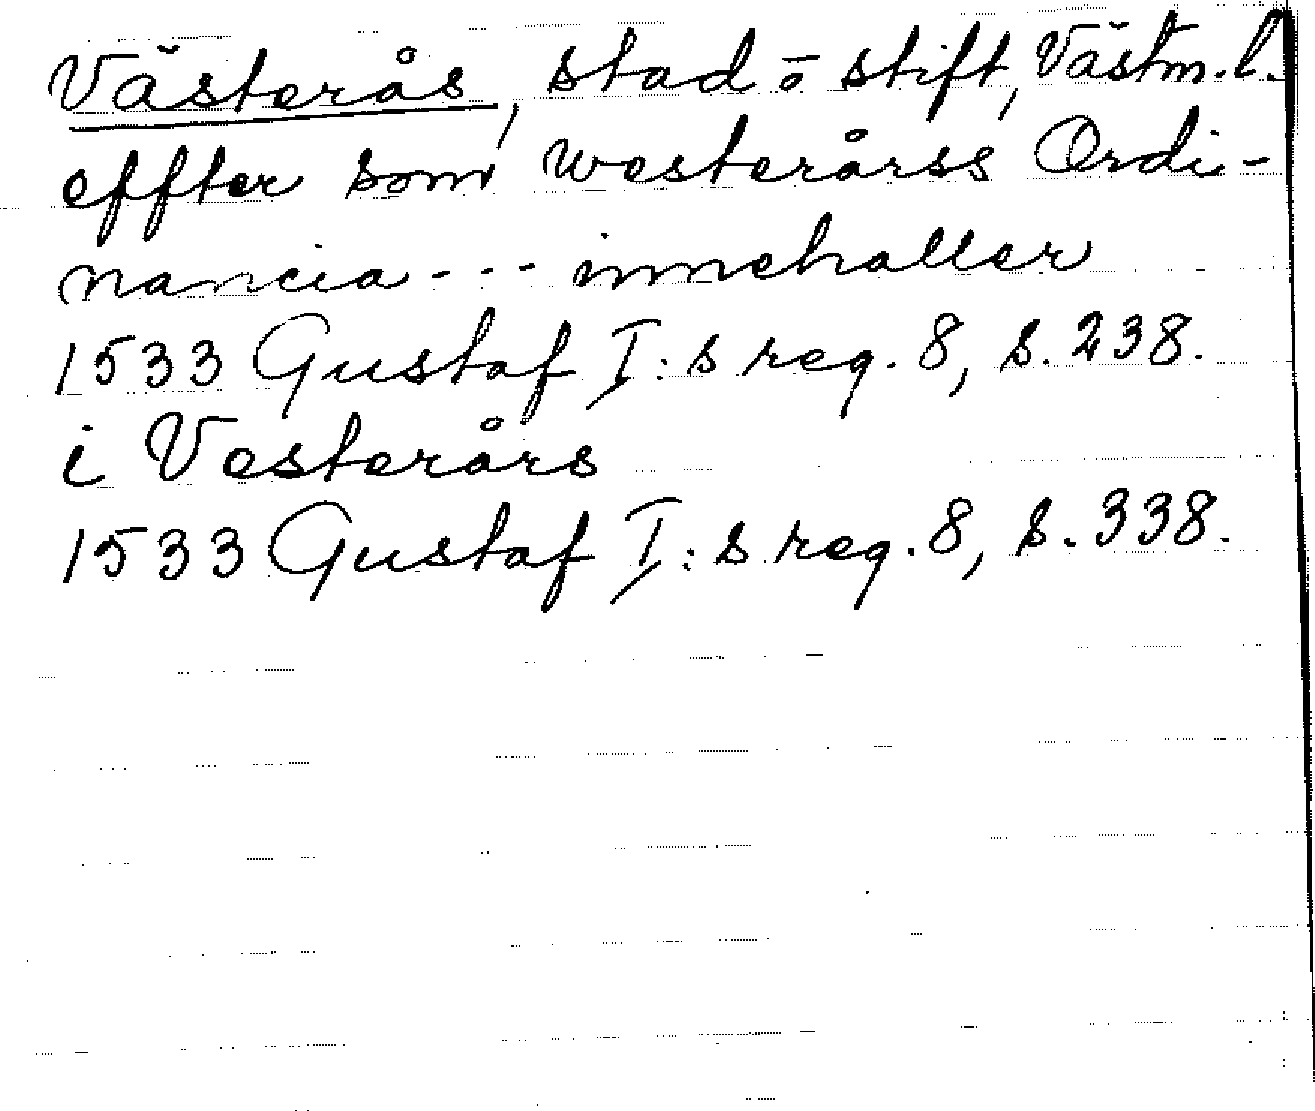 Västerås, stad ō stift, Västm. l.
effter som westerårss Ordi-
nancia - - - innehaller
1533 Gustaf I:s reg. 8, s. 238.
i Vesterårs
1533 Gustaf I:s reg. 8, s. 338.